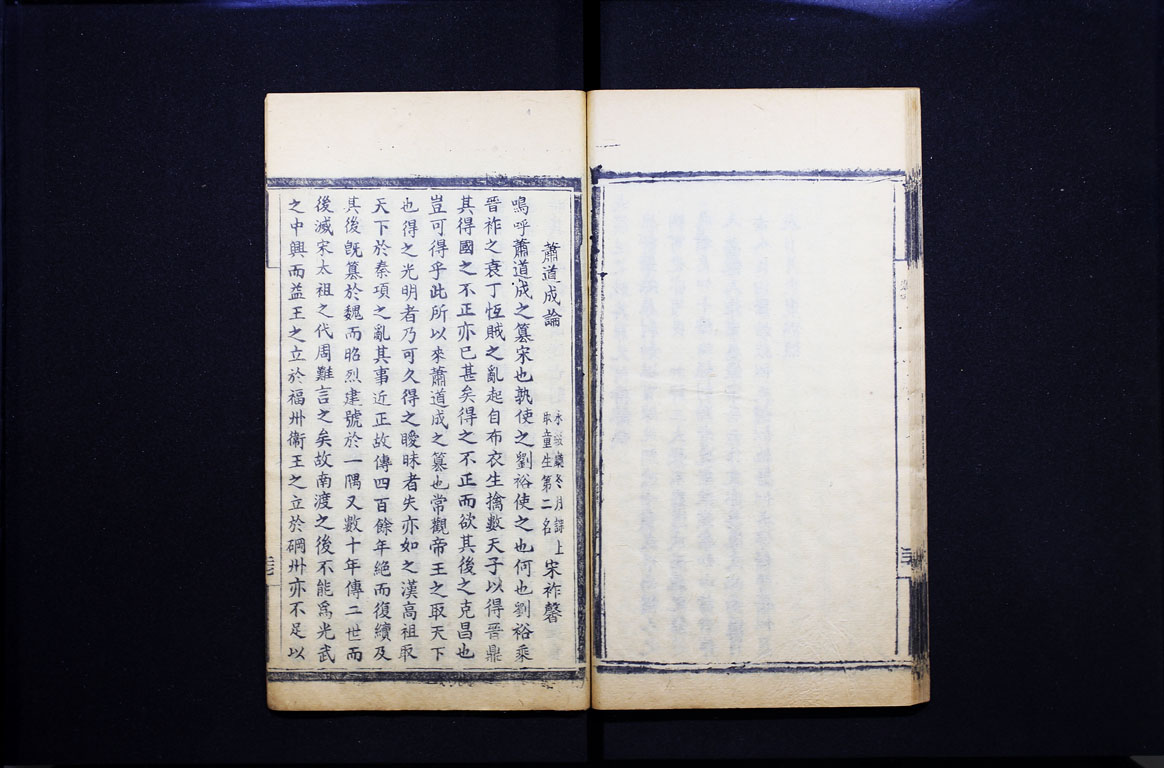 蕭道成論
冬月課上
取童生第二名
宋祚馨
嗚呼蕭道成之篡宋也孰使之劉裕使之也何也劉裕乘
晉祚之衰丁恆賊之亂起自布衣生擒數天子以得晉鼎
其得國之不正亦已甚矣得之不正而欲其後之克昌也
豈可得乎此所以來蕭道成之篡也常觀帝王之取天下
也得之光明者乃可久得之曖昧者失亦如之漢高祖取
天下於秦項之亂其事近正故傳四百餘年絕而復續及
其後旣篡於魏而昭烈建號於一隅又數十年傳二世而
後滅宋太祖之代周難言之矣故南渡之後不能爲光武
之中興而益王之立於福州衞王之立於碙州亦不足以